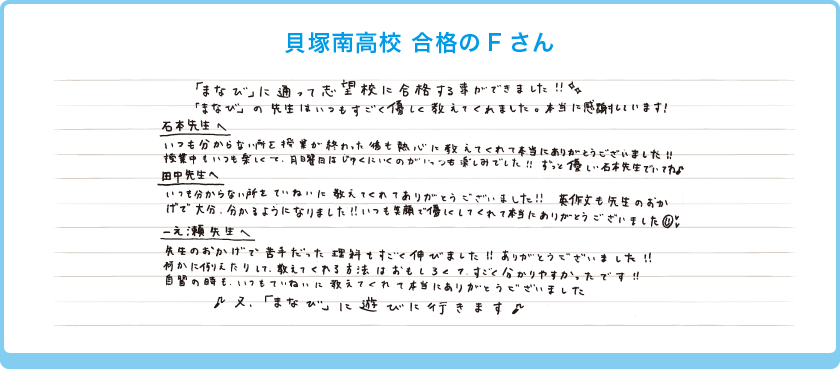 貝塚南高校 合格のFさん
「まなび」に通って志望校に合格する事ができました!!
「まなび」の先生はいつもすごく優しく教えてくれました。本当に感謝しています!
石本先生へ
いつも分からない所を授業が終わった後も熱心に教えてくれて本当にありがとうございました!!
授業中もいつも楽しくて、月曜日はじゅくにいくのがいっつも楽しみでした!!ずっと優しい石本先生でいてね♪
田中先生へ
いつも分からない所をていねいに教えてくれてありがとうございました!! 英作文も先生のおか
げで大分、分かるようになりました!!いつも笑顔で優しくしてくれて本当にありがとうございました
一之瀬先生へ
先生のおかげで苦手だった理科もすごく伸びました!!ありがとうございました!!
何かに例えたりして、教えてくれる方法はおもしろくて、すごく分かりやすかったです!!
自習の時も、いつもていねいに教えてくれて本当にありがとうございました
♪又、「まなび」に遊びに行きます♪